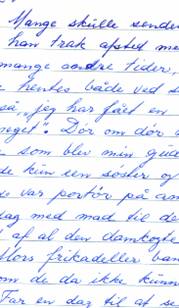 Mange skulle sender
han trak afsted med
mange andre tider,
hentes både ved s
så "jeg har fået en
meget". Dør om dør a
som blev min gud
de kun een søster og
de var portør på am
dag med mad til de
af al den damkogte
Mors frikadeller ban
om de da ikke kunne
Far en dag til at s